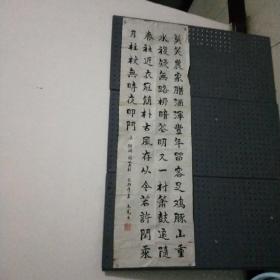 莫笑農家臘酒渾豐年留客足鸡豚山重
水複疑無路柳暗花明又一村簫鼓追随
春社近衣冠簡朴古風存从今若許閑乘
月柱杖無時夜叩門